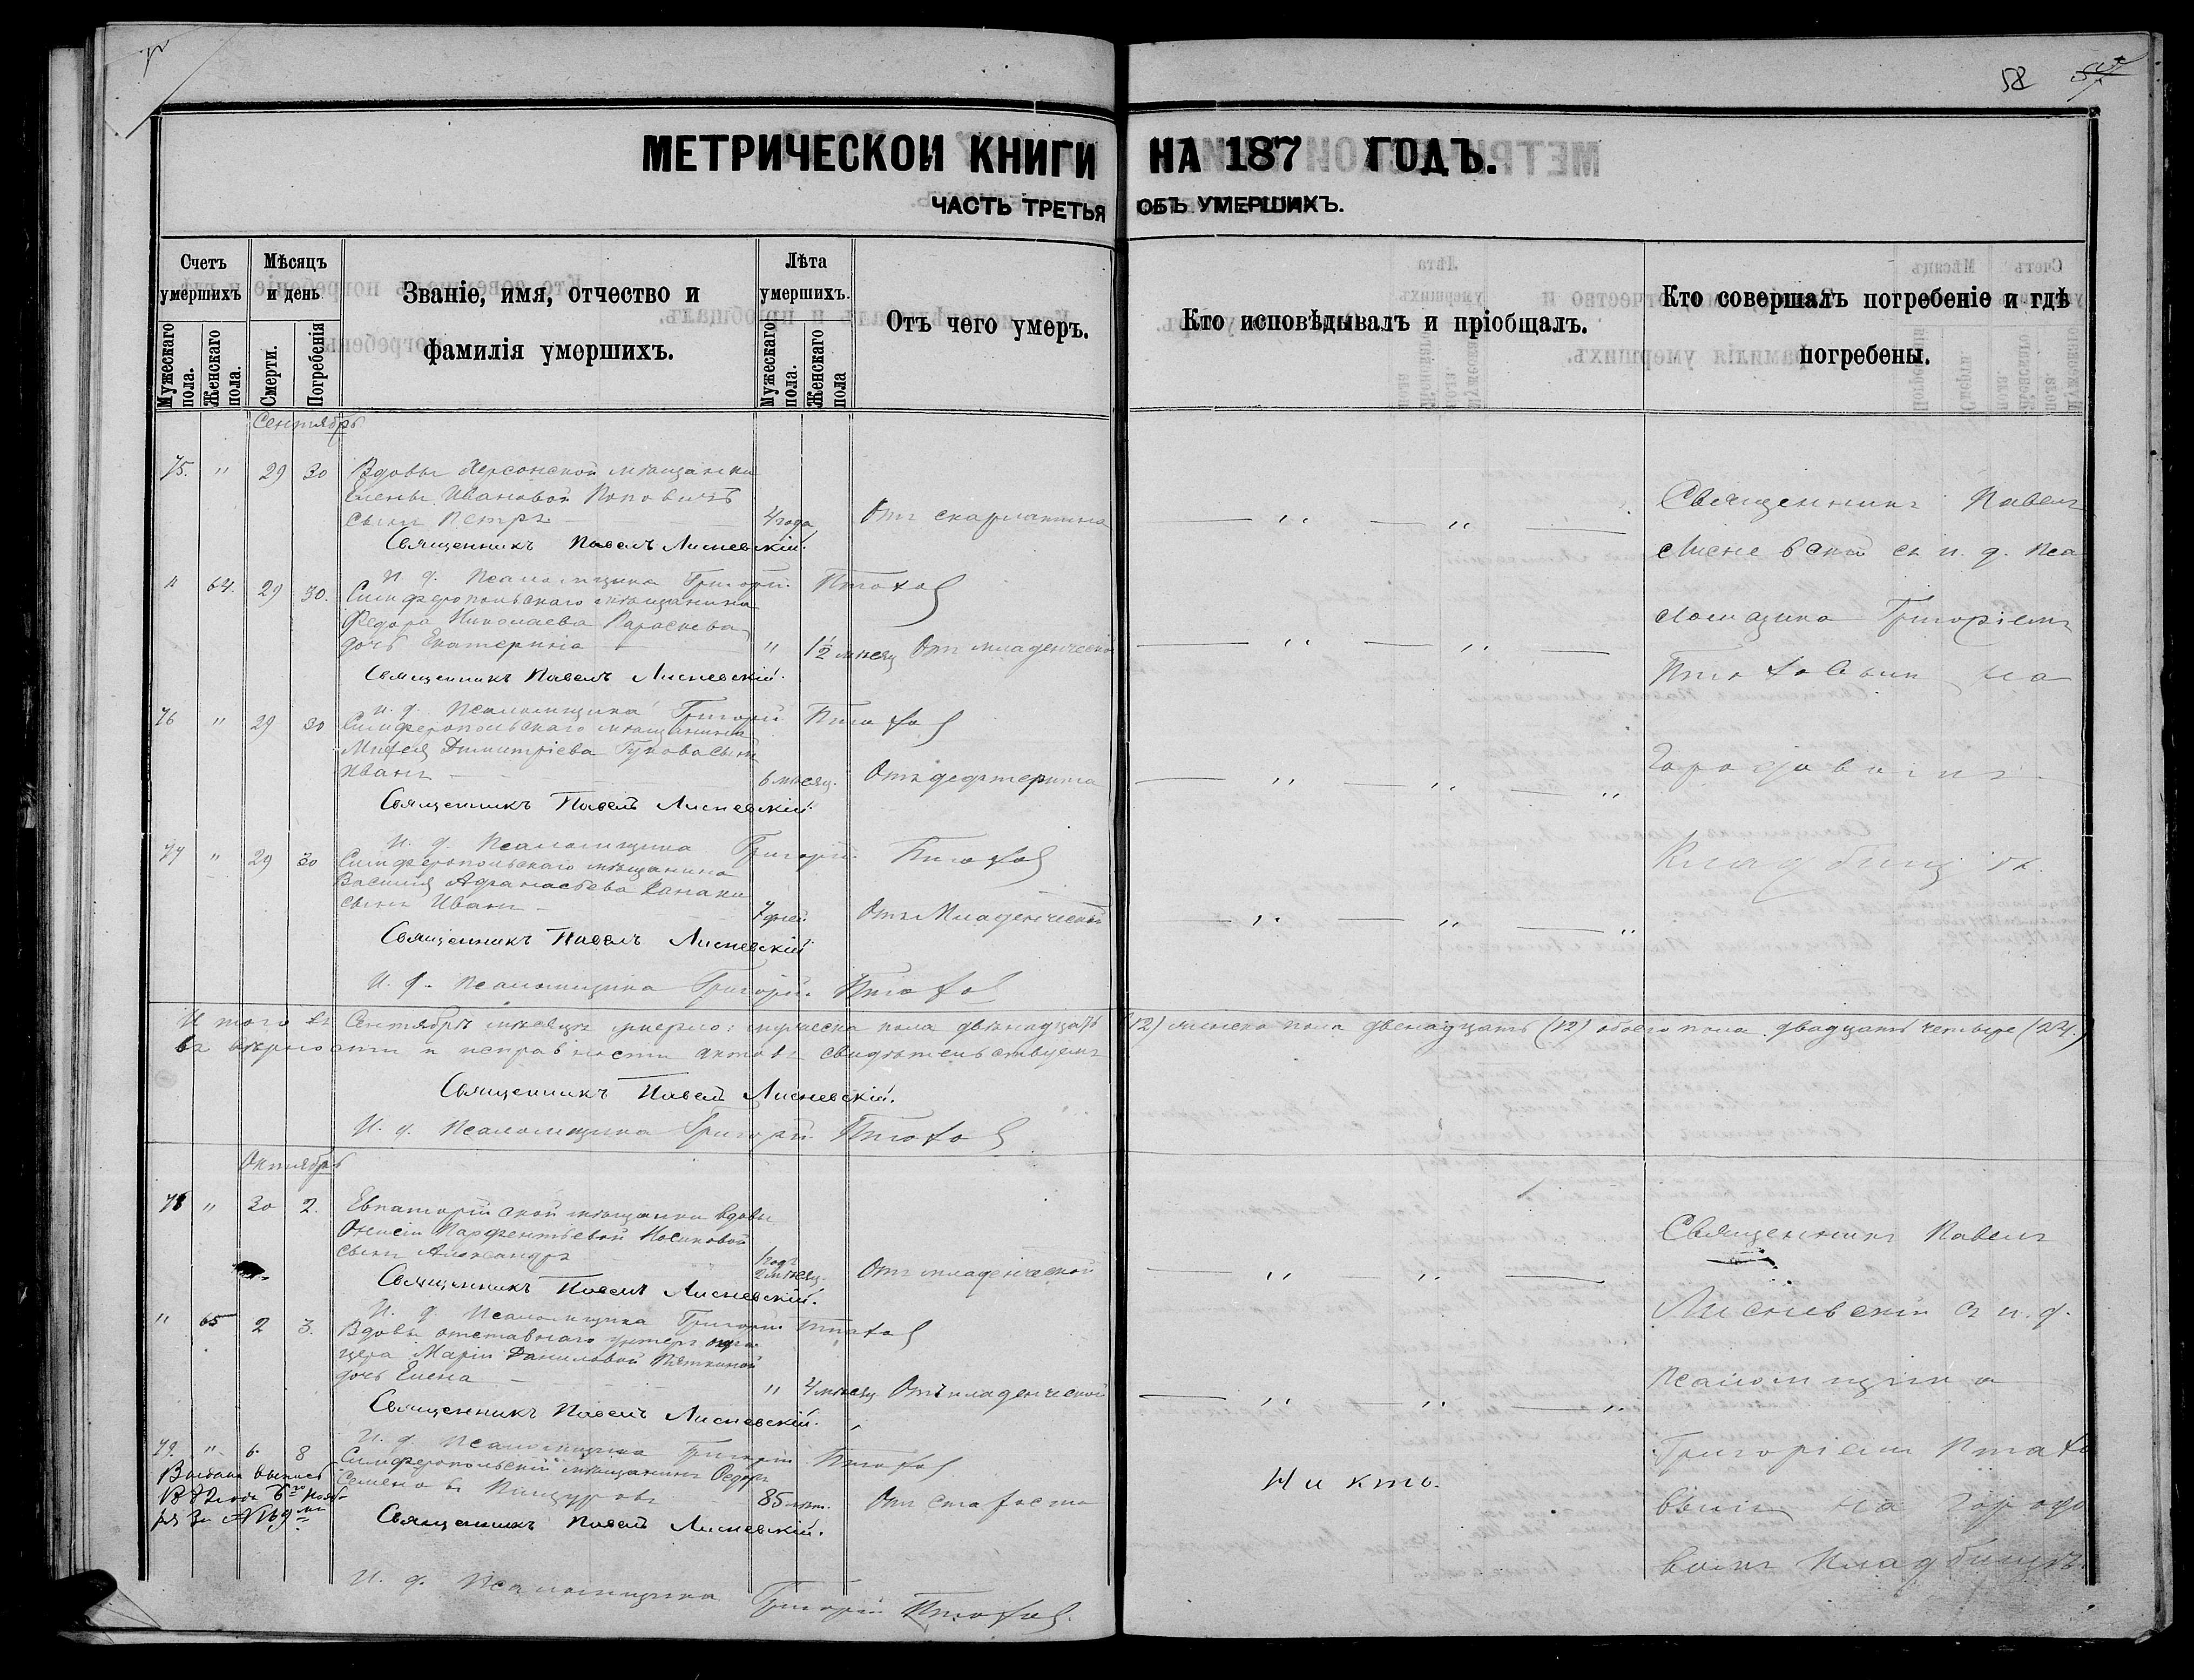 58
МЕТРИЧЕСКОЙ КНИГИ НА 187 ГОДЪ.
ЧАСТЬ ТРЕТЬЯ ОБЪ УМЕРШИХЪ.
Счетъ умершихъ
Мѣсяцъ и день
Званіе, имя, отчество и фамилія умершихъ.
Лѣта умершихъ.
Отъ чего умеръ.
Кто исповѣдывалъ и пріобщалъ.
Кто совершалъ погребеніе и гдѣ погребены.
Мужескаго пола.
Женскаго пола.
Смерти.
Погребенія
Мужескаго пола.
Женскаго пола
Сентябрь
75. " 29 30 Вдовы Херсонской мѣщанки
Елены Ивановой Поповичъ
сынъ Петръ 4 года Отъ скарлатины
Священникъ Павелъ Лисневскій.
И. д. Псаломщика Григорій Птахов
" 64. 29 30. Симферопольскаго мѣщанина
Федора Николаева Параскева
дочь Екатерина " 1½ мѣсяц Отъ младенческой
Священникъ Павелъ Лисневскій.
И. д. Псаломщика Григорій Птахов
76 " 29 30 Симферопольскаго мѣщанина
Димитріева сынъ
Иванъ 6 мѣсяц. Отъ дифтерита
Священникъ Павелъ Лисневскій.
И. д. Псаломщика Григорій Птахов
77 " 29 30 Симферопольскаго мѣщанина
Василія Афанасьева
сынъ Иванъ 7 дней Отъ Младенческой
Священникъ Павелъ Лисневскій.
И. д. Псаломщика Григорій Птахов
Священникъ Павелъ
Лисневскій съ и. д. Пса
ломщика Григоріемъ
Птаховымъ на
Городовомъ
Кладбищѣ.
Итого въ Сентябрѣ мѣсяцѣ умерло: мужеска пола двѣнадцать (12) женска пола двенадцать (12) обоего пола двадцать четыре (24.)
въ вѣрности и исправности актовъ свидѣтельствуемъ
Священникъ Павелъ Лисневскій.
И. д. Псаломщика Григорій Птахов
Октябрь
78 " 30 2. Евпаторійской мѣщанки вдовы
Парфентьевой Носиковой
сынъ Александръ 1 годъ 2 мѣсяц. Отъ младенческой
Священникъ Павелъ Лисневскій.
И. д. Псаломщика Григорій Птахов
" 65 2 3. Вдовы отставнаго унтеръ офи
цера Маріи Даниловой Пяткиной
дочь Елена " 4 мѣсяц Отъ младенческой
Священникъ Павелъ Лисневскій.
И. д. Псаломщика Григорій Птахов
79. " 6. 8 Симферопольскій мѣщанинъ Федоръ
Семеновъ 85 лѣт. Отъ старости
Выдана выпись
Священникъ Павелъ Лисневскій.
И. д. Псаломщика Григорій Птахов.
Никто.
Священникъ Павелъ
Лисневскій съ и. д.
Псаломщика
Григоріемъ Птахо
вымъ на Городо
вомъ Кладбищѣ.